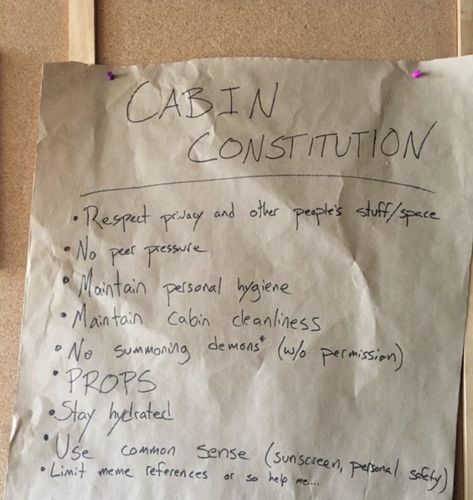 CABIN
CONSTITUTION
• Respect privacy and other people's stuff/space
• No peer pressure
• Maintain personal hygiene
• Maintain cabin cleanliness
• No summoning demons* (w/o permission)
• PROPS
• Stay hydrated
• Use common sense (sunscreen, personal safety)
• Limit meme references or so help me....